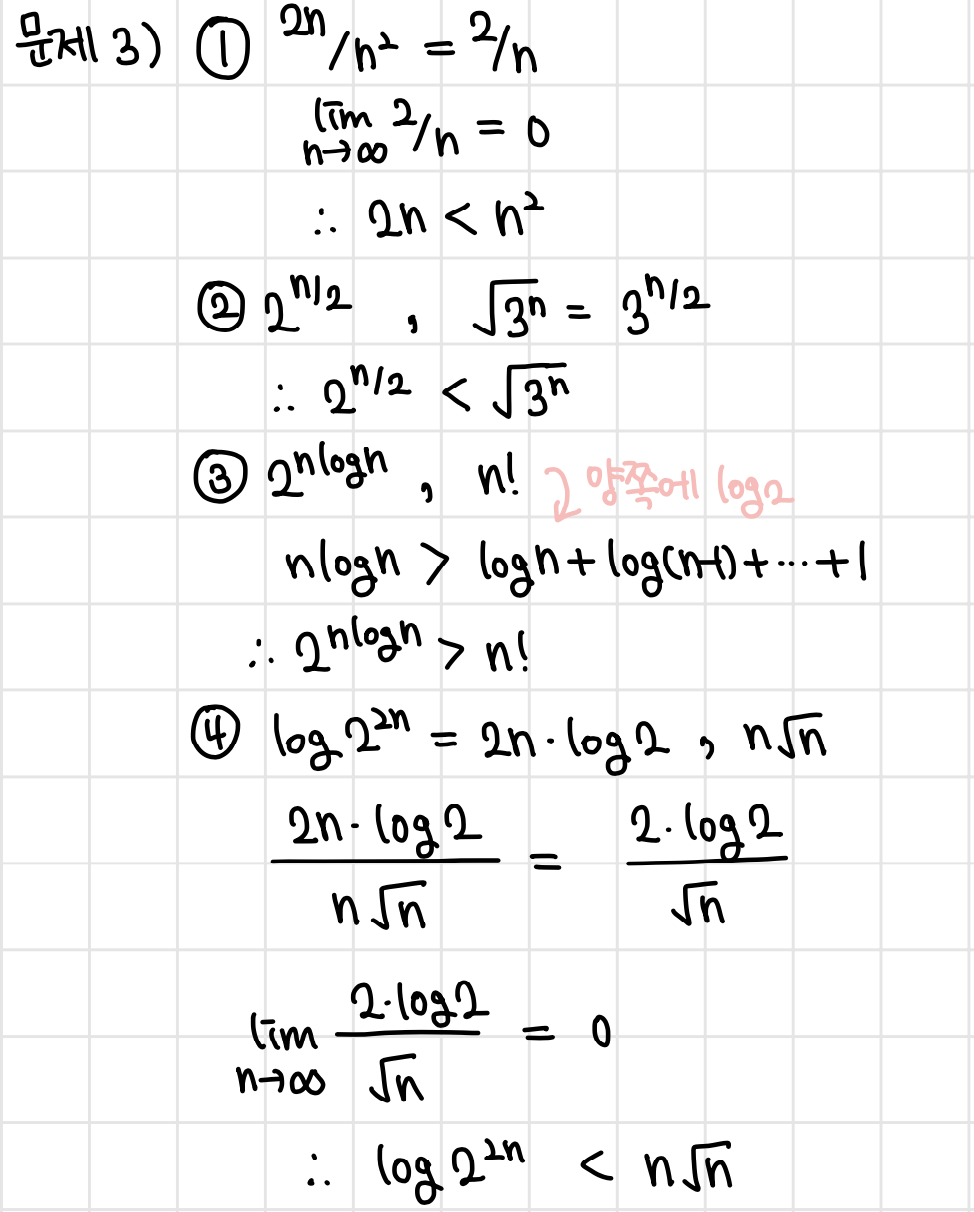 문제 3) ① 2n/n² = 2/n
lim n→∞ 2/n = 0
∴ 2n < n²
② 2^(n/2) , √(3ⁿ) = 3^(n/2)
∴ 2^(n/2) < √(3ⁿ)
③ 2^(nlogn) , n! 양쪽에 log₂
nlogn > logn + log(n-1) + ⋯ + 1
∴ 2^(nlogn) > n!
④ log 2^(2n) = 2n · log2 , n√n
(2n · log2)/(n√n) = (2 · log2)/√n
lim n→∞ (2 · log2)/√n = 0
∴ log 2^(2n) < n√n